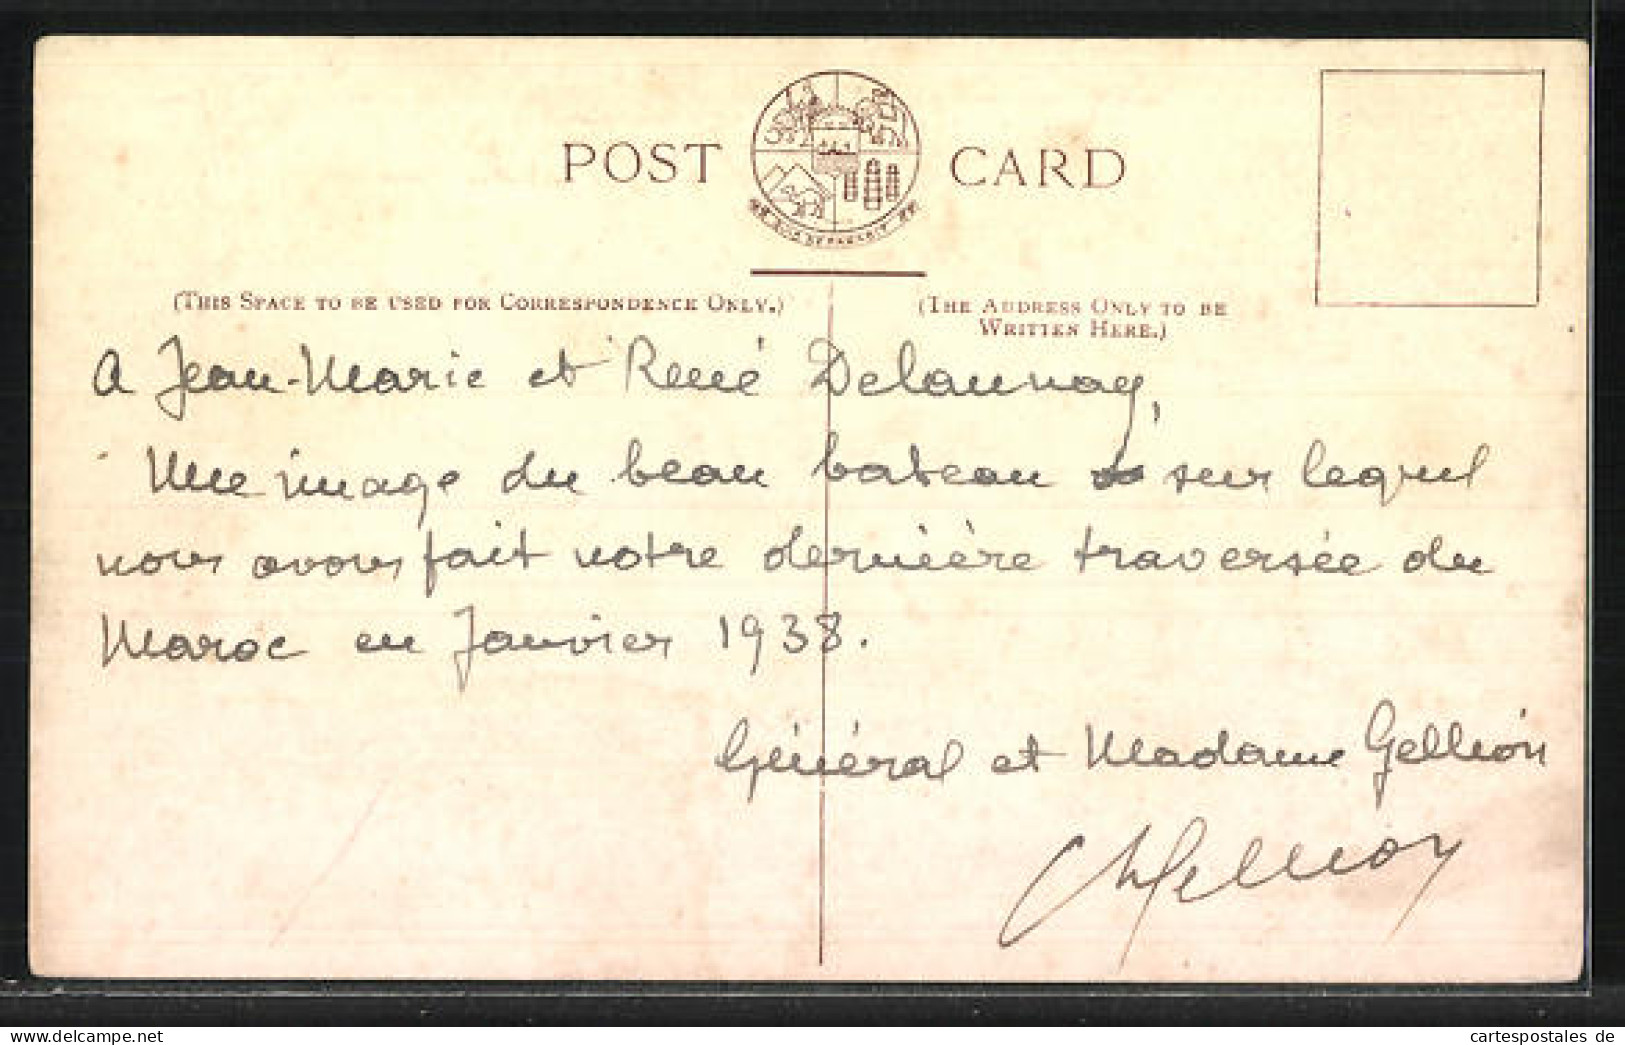 POST CARD
QUIS SEPARABIT
(THIS SPACE TO BE USED FOR CORRESPONDENCE ONLY.)
(THE ADDRESS ONLY TO BE
WRITTEN HERE.)
A Jean-Marie et René Delaunay,
Une image du beau bateau sur lequel
nous avons fait notre dernière traversée du
Maroc en Janvier 1938.
Général et Madame Gellion
cartespostales de